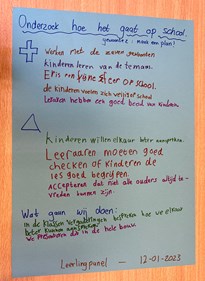 Onderzoek hoe het gaat op school.
maak een plan?
Werken met de zeven gewoontes
kinderen leren van de leraar.
Er is een fijne sfeer op school.
de kinderen voelen zich veilig op school
Leraren hebben een goed beeld van kinderen.
Kinderen willen elkaar beter aanspreken.
Leeraaren moeten goed
checken of kinderen de
les goed begrijpen.
Accepteren dat niet alle ouders altijd te-
vreden kunnen zijn.
Wat gaan wij doen:
In de klassen vergaderingen bespreken hoe we elkaar
beter kunnen aanspreken
We presenteren dit in de hele bouw.
Leerlingpanel — 12-01-2023